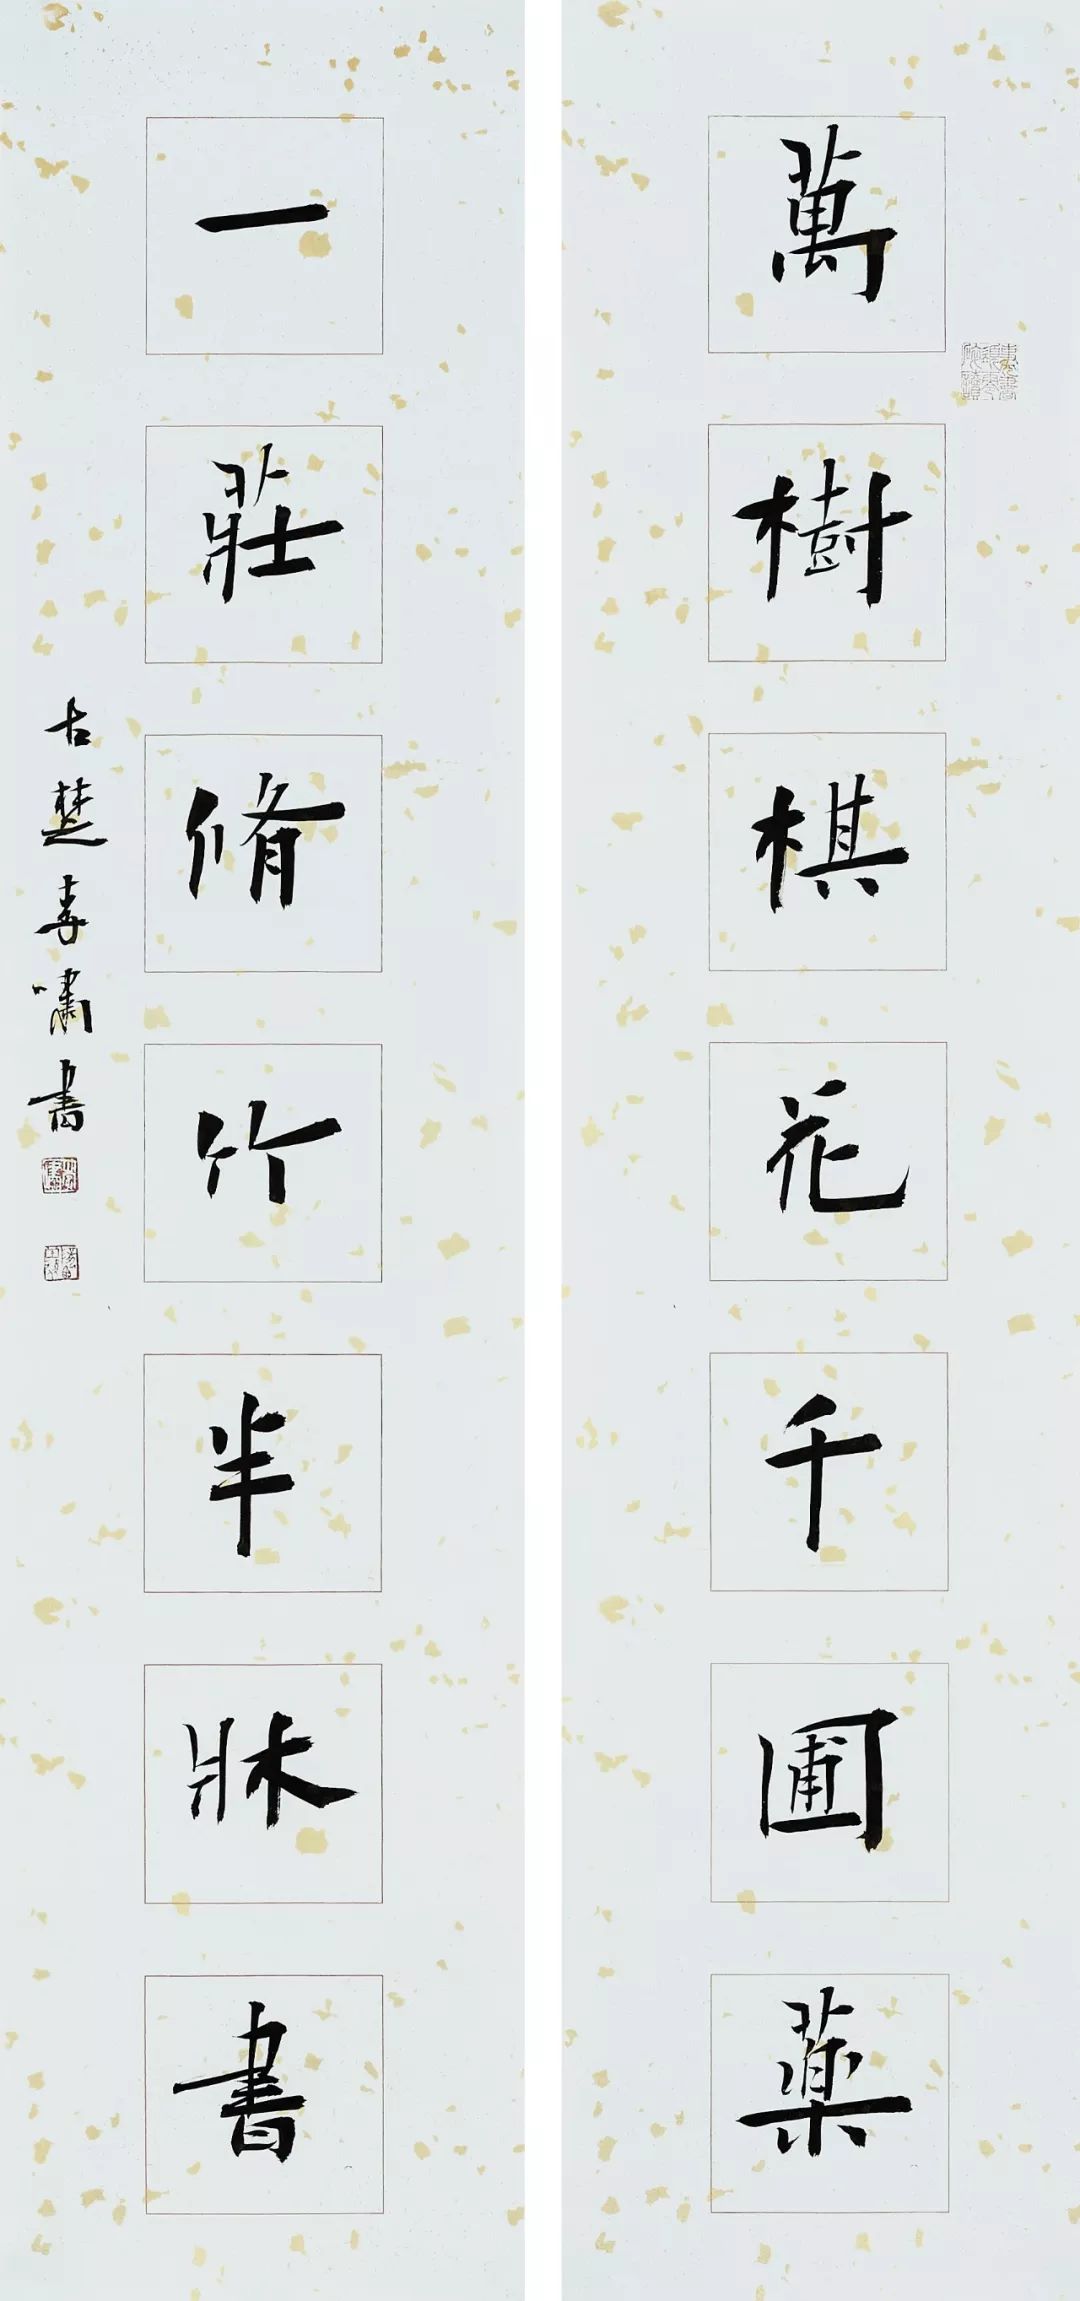 萬樹棋花千圃藥
一莊脩竹半牀書
古楚李嘯書